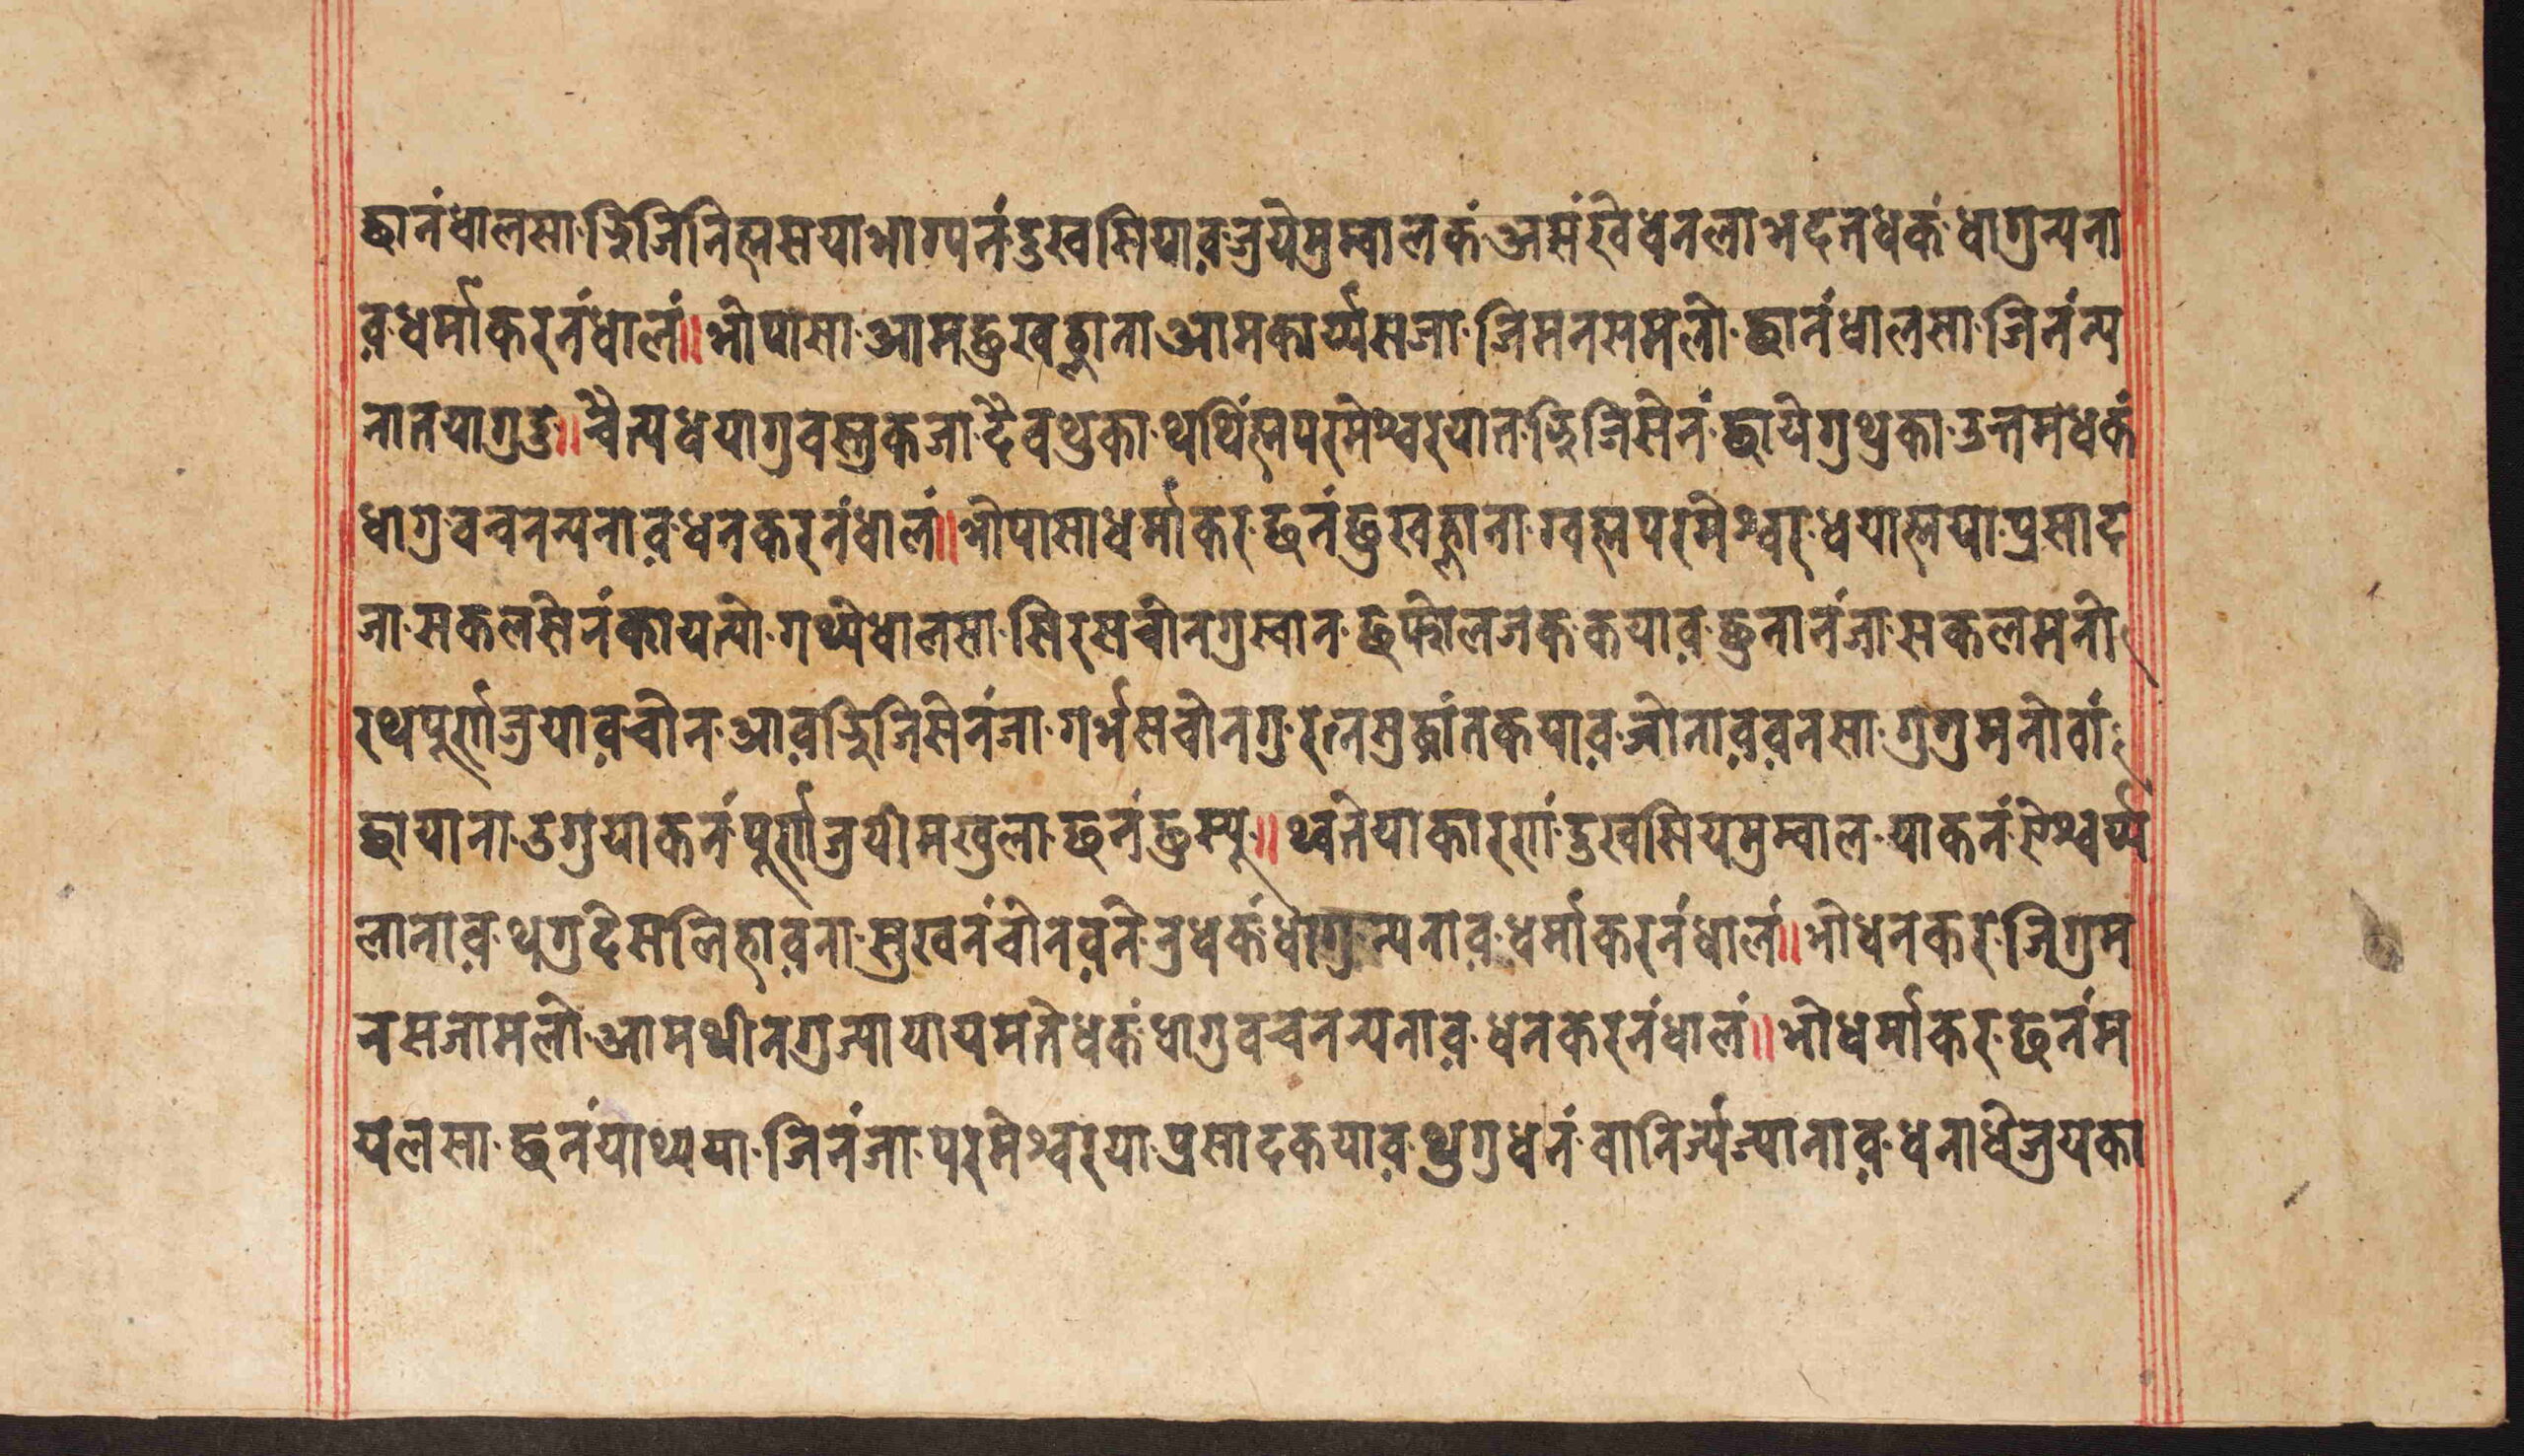 द्धानंधालसा·झिजिनिह्मसयाभाग्यनं·दुखसियाव़·जुयेमुम्वालकं·असंखेधनलाभदतधकं·धागुन्यना
व़·धर्माकरनंधालं॥भोपासा·आमछुखह्लाना·आमकार्य्यसजा·जिमनसमलो·छानंधालसा·जिनंन्य
नातयागुदु॥चैत्यधयागुवस्तुकजा·दैवथुका·थथिंह्मपरमेश्वरयात·झिजिसेनं·छायेगुथुका·उत्तमधकं
धागुवचनन्यनाव़·धनकरनंधालं॥भोपासाधर्माकर·छनंछुखह्लाना·ग्वह्मपरमेश्वर·धयाह्मया·प्रसाद
जा·सकलसेनंकायत्यो·गथ्येधालसा·सिरसचोनगुस्वान·छफोलजक·कयाव़·छुनानंजा·सकलमनो
रथपूर्णजुयाव़चोन·आव़झिजिसेनंजा·गर्भसचोनगु·रत्नमुद्धांतकयाव़·जोनाव़व़नसा·गुगुमनोवां
छायाना·उगुयाकनं·पूर्णजुयीमखुला·छनंछुस्यू॥थ्वतेयाकारणं·दुखसियमुम्वाल·याकनं·ऐश्वर्य्य
लानाव़·थगुदेसलिहाव़ना·सुखनंचोनव़नेनुधकंधागु·न्यनाव़·धर्माकरनंधालं॥भोधनकर·जिगुम
नसजामलो·आमथीनगुज्यायायमतेधकं·धागुवचनन्यनाव़·धनकरनंधालं॥भोधर्माकर·छनंम
यलसा·छनंयोथ्यया·जिनंजा·परमेश्वरया·प्रसादकयाव़·थुगुधनं·वानिर्ज्यज्यानाव़·धनाधेजुयका